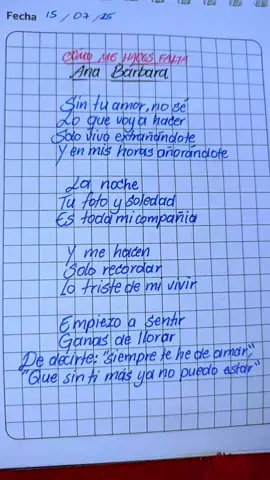 Fecha 15 / 07 / 25
COMO ME HACES FALTA
Ana Bárbara
Sin tu amor, no sé
Lo que voy a hacer
Solo vivo extrañándote
Y en mis horas añorándote
La noche
Tu foto y soledad
Es toda mi compañia
Y me hacen
Solo recordar
Lo triste de mi vivir
Empiezo a sentir
Ganas de llorar
De decirte: "siempre te he de amar",
"Que sin ti más ya no puedo estar"